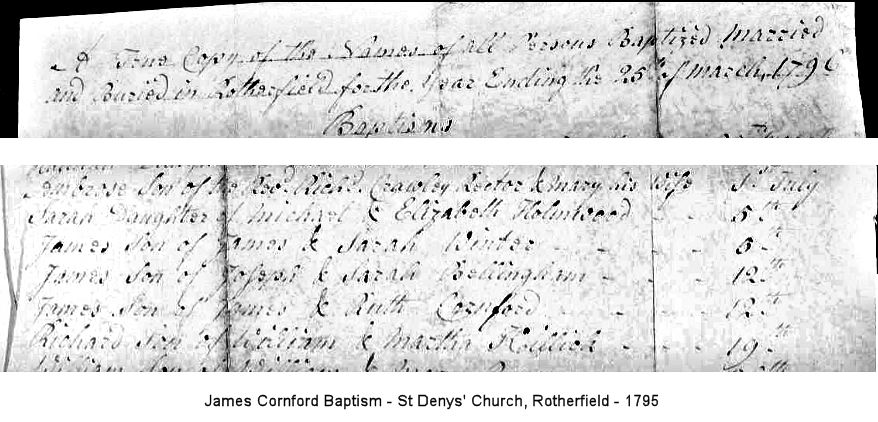 A True Copy of the Names of all Persons Baptized Married
and Buried in Rotherfield for the Year Ending the 25th of March 1796
Baptisms
Ambrose Son of the Revd. Richd. Crawley Rector & Mary his Wife - 1st July
Sarah Daughter of Michael & Elizabeth Holmwood - - 5th
James Son of James & Sarah Winter - - - 5th
James Son of Joseph & Sarah Bellingham - - - 12th
James Son of James & Ruth Cornford - - - 12th
Richard Son of William & Martha - - - 19th
William Son of William &
James Cornford Baptism - St Denys' Church, Rotherfield - 1795